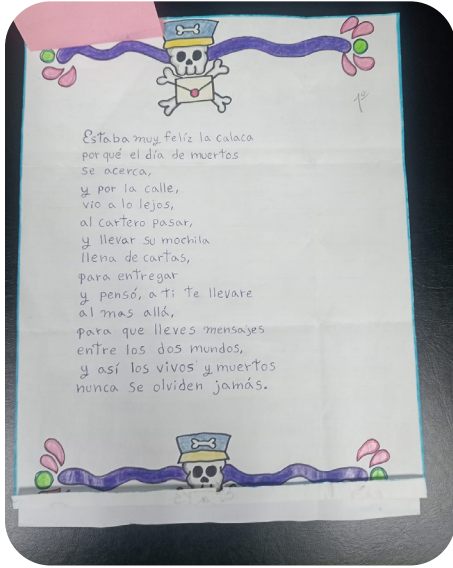 1º
Estaba muy felíz la calaca
por qué el día de muertos
se acerca,
y por la calle,
vio a lo lejos,
al cartero pasar,
y llevar su mochila
llena de cartas,
para entregar
y pensó, a ti te llevare
al mas allá,
para que lleves mensajes
entre los dos mundos,
y así los vivos y muertos
nunca se olviden jamás.